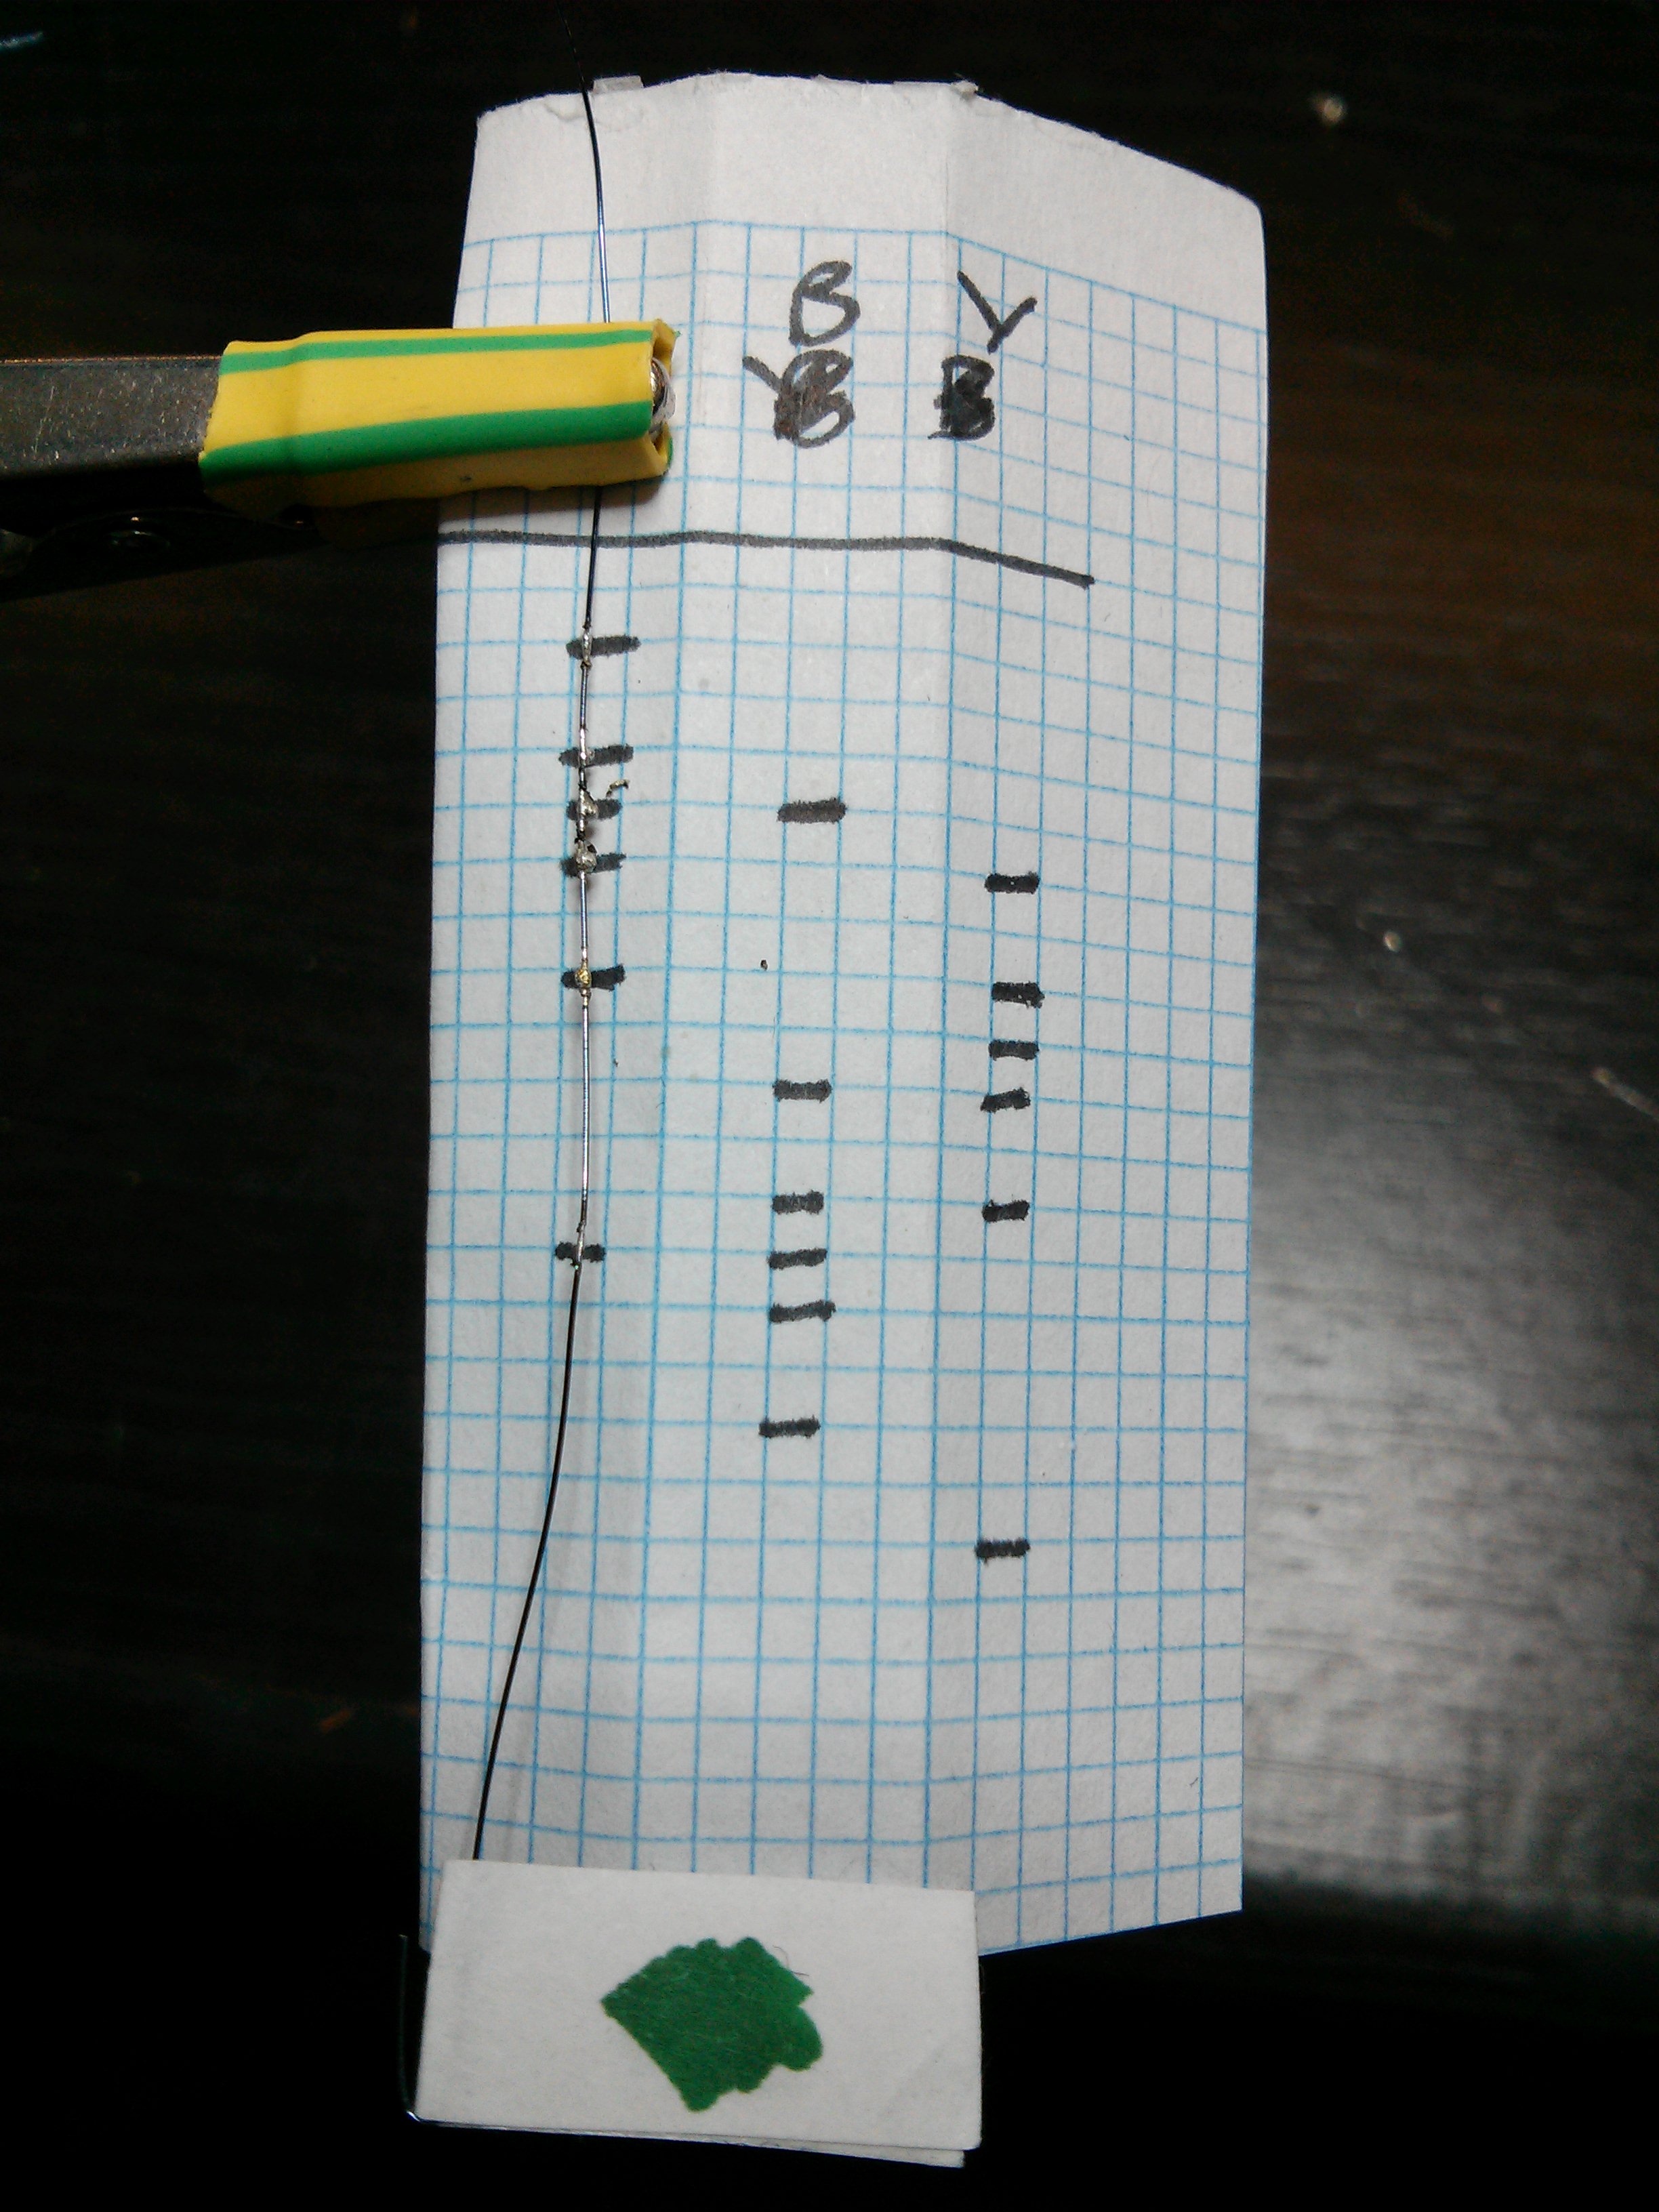 B Y
B B